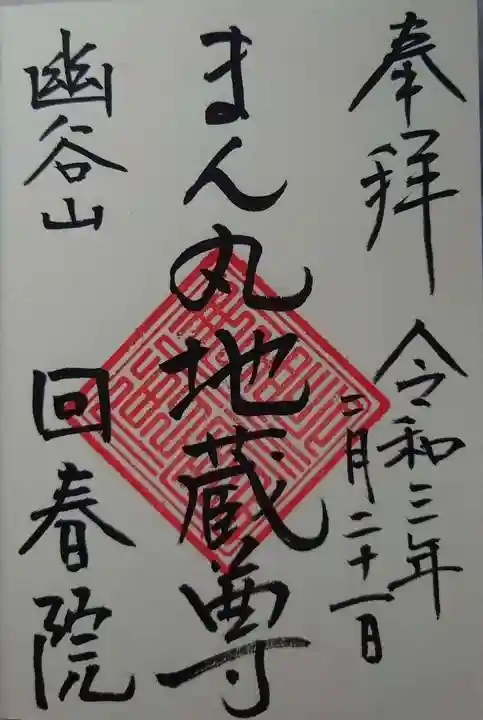 奉拝
令和三年
二月二十一日
まん丸地蔵尊
幽谷山
回春院